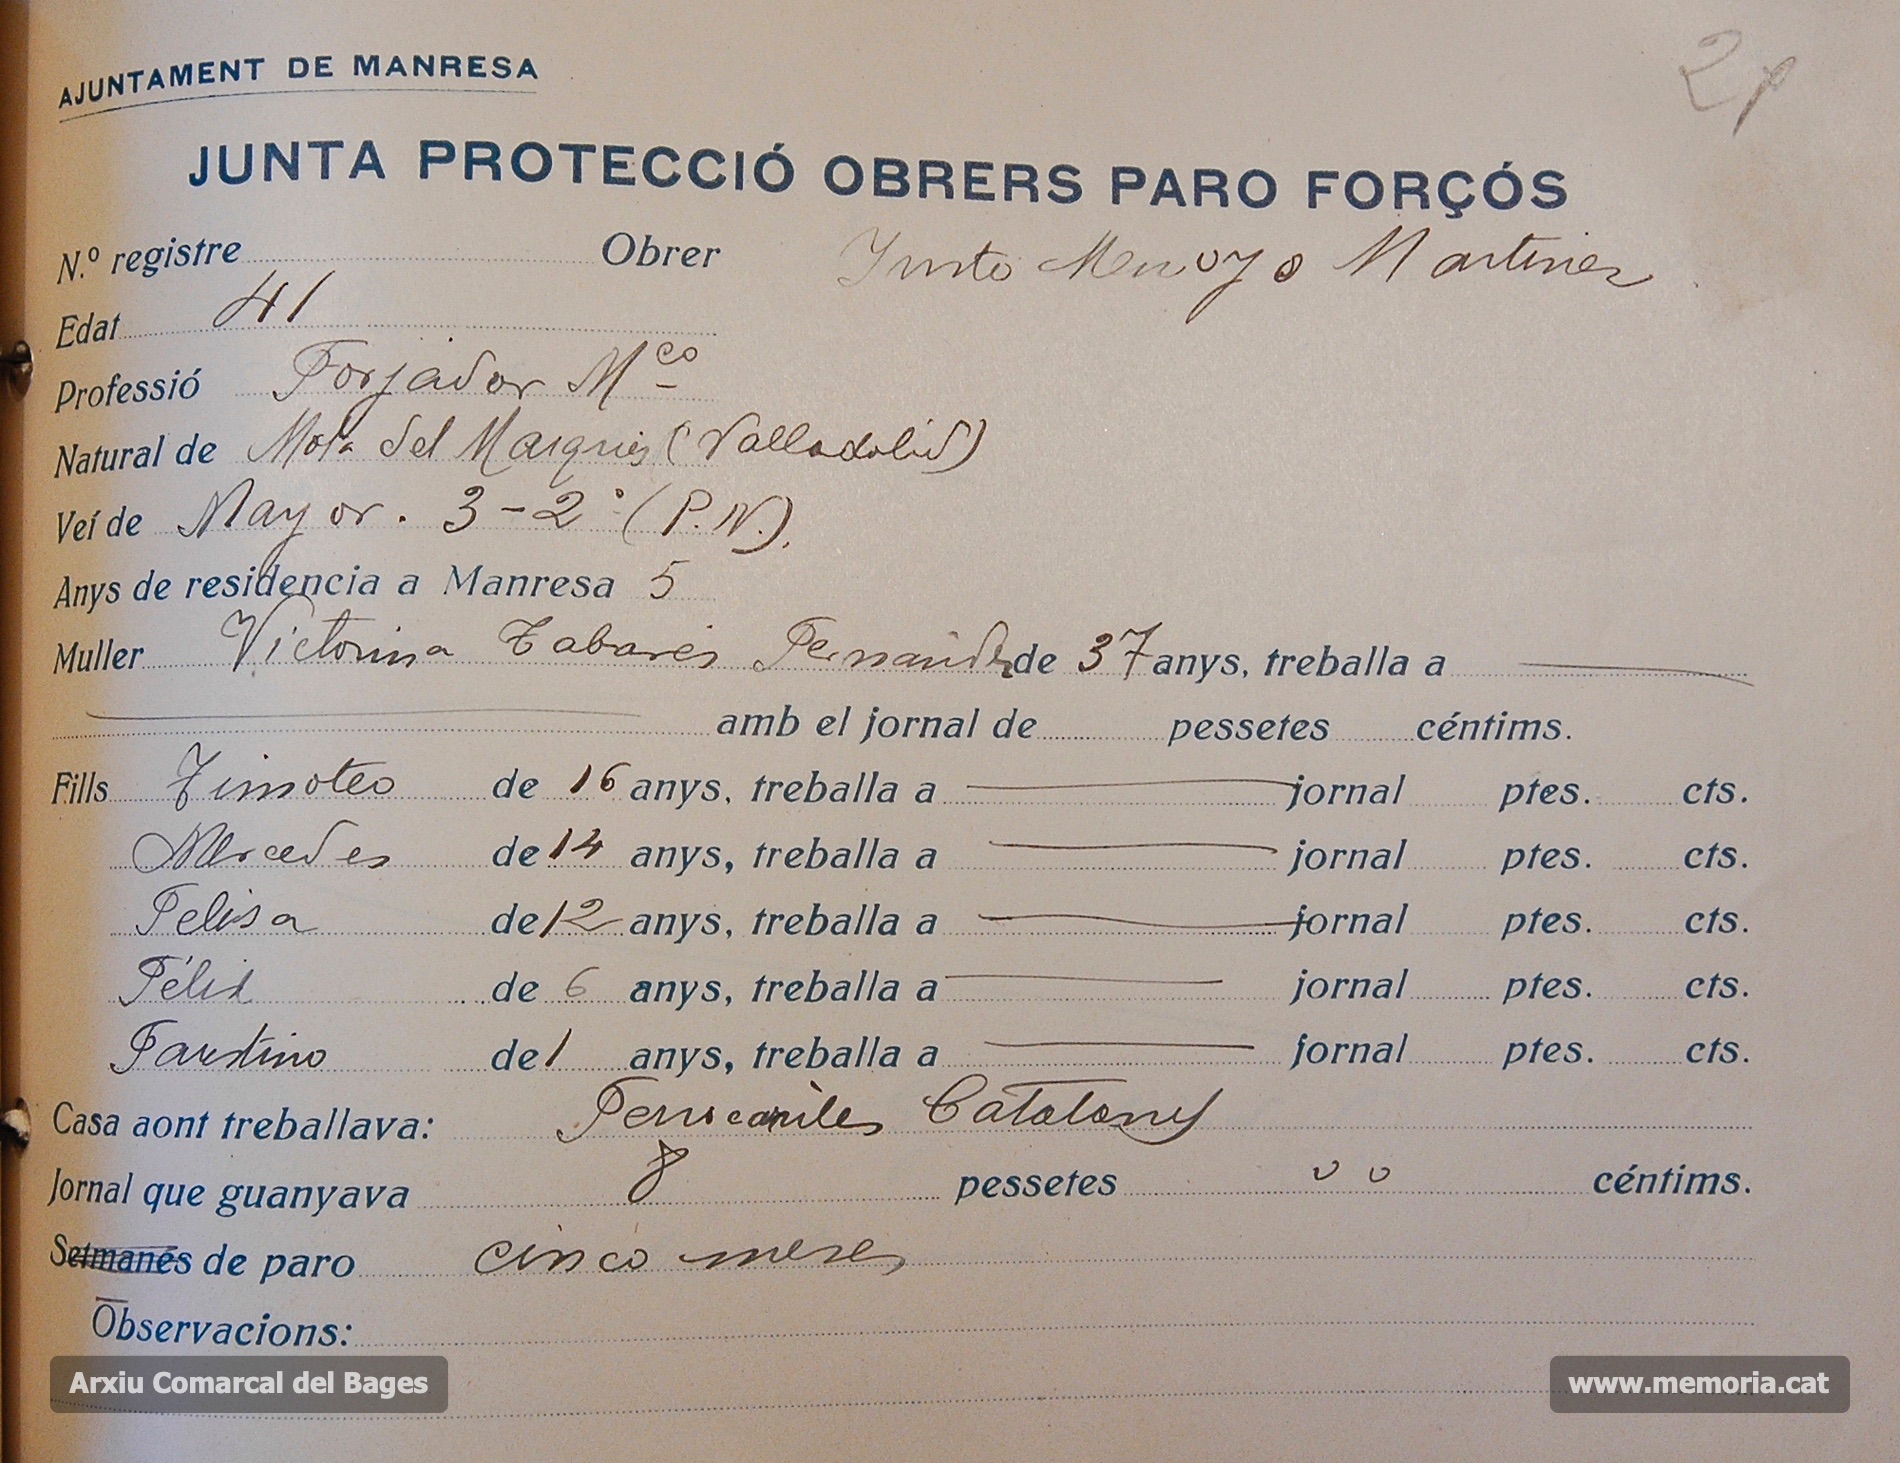 2p
AJUNTAMENT DE MANRESA
JUNTA PROTECCIÓ OBRERS PARO FORÇÓS
N.º registre Obrer Justo Menoyo Martinez
Edat 41
Professió Forjador Mco
Natural de Mota del Marqués (Valladolid)
Veí de Mayor. 3-2º (P.N.).
Anys de residencia a Manresa 5
Muller Victorina Tabarés Fernández de 37 anys, treballa a
amb el jornal de pessetes céntims.
Fills Timoteo de 16 anys, treballa a jornal ptes. cts.
Mercedes de 14 anys, treballa a jornal ptes. cts.
Felisa de 12 anys, treballa a jornal ptes. cts.
Félix de 6 anys, treballa a jornal ptes. cts.
Faustino de 1 anys, treballa a jornal ptes. cts.
Casa aont treballava: Ferrocarriles Catalans
Jornal que guanyava 8 pessetes 00 céntims.
Setmanes de paro cinco meses
Observacions:
Arxiu Comarcal del Bages
www.memoria.cat